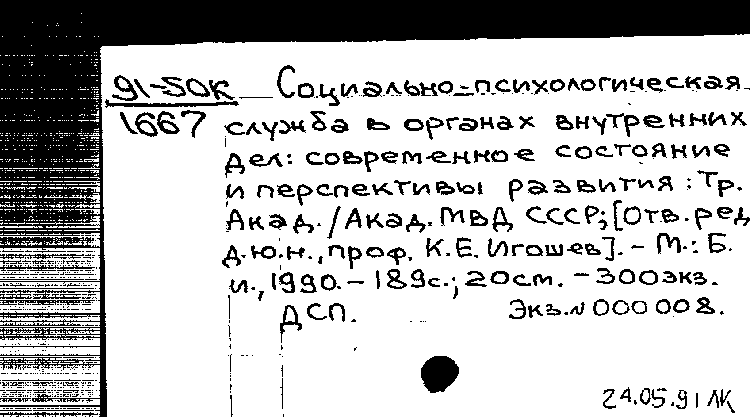 91-50К Социально-психологическая
1667 служба в органах внутренних
дел: современное состояние
и перспективы развития: Тр.
Акад./Акад. МВД СССР; [Отв. ред.
д.ю.н., проф. К.Е. Игошев]. - М.: Б.
и., 1990. - 189с.; 20см. - 300экз.
ДСП. Экз.N 000008.
24.05.91 ЛК